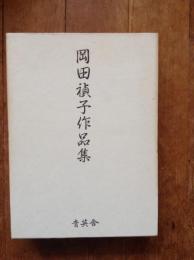 岡田禎子作品集
青英舎